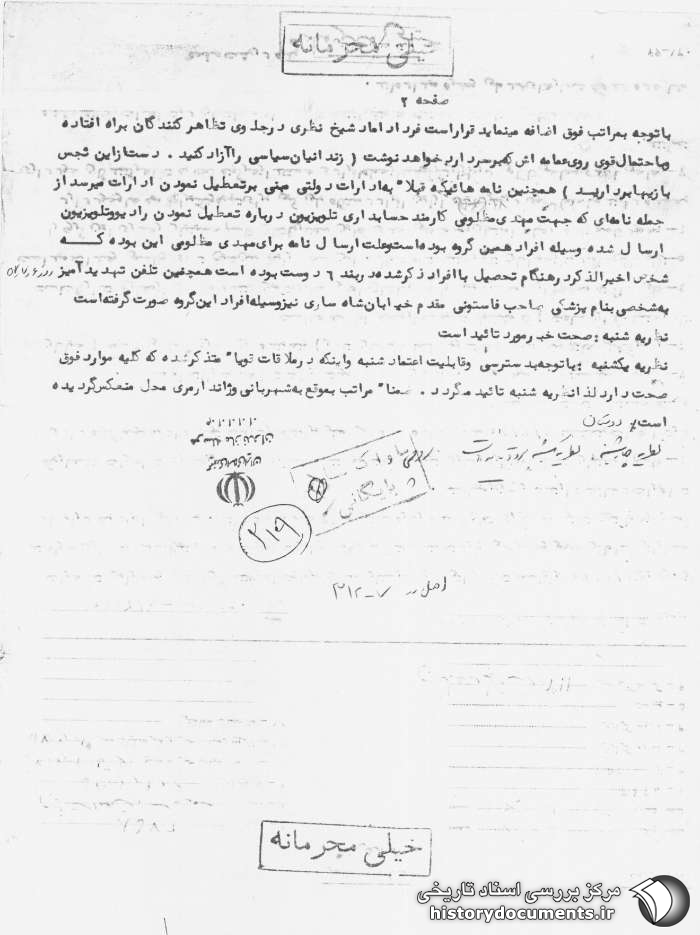 خیلی محرمانه
صفحه ۲
باتوجه بمراتب فوق اضافه مینماید قراراست فردا داماد شیخ نظری درجلوی تظاهر کنندگان براه افتاده
وباحتمال قوی روی عمامه اش که برسر دارد خواهد نوشت ( زندانیان سیاسی راآزاد کنید . دست ازاین
بازیها بردارید ) همچنین نامه هائیکه قبلا" به ادارات دولتی مبنی برتعطیل نمودن ادارات میرسد از
جمله نامه‌ای که جهت مهدی مظلومی کارمند حسابداری تلویزیون درباره تعطیل نمودن رادیووتلویزیون
ارسال شده وسیله افراد همین گروه بوده است وعلت ارسال نامه برای مهدی مظلومی این بوده کــه
شخص اخیرالذکر در هنگام تحصیل باافراد ذکرشده در بند ٦ دوست بوده است همچنین تلفن تهدیدآمیز
به شخصی بنام پزشکی صاحب فاستونی مقدم خیابان شاه ساری نیزوسیله افراد این گروه صورت گرفته است
نظریه شنبه : صحت خبر مورد تائید است
نظریه یکشنبه : باتوجه بدسترسی وقابلیت اعتماد شنبه واینکه در ملاقات قویا" متذکر شده که کلیه موارد فوق
صحت دارد لذا نظریه شنبه تائید میگردد . ضمنا" مراتب بموقع به شهربانی وژاندارمری محل منعکس گردیده
است
نظریه
بایگانی
۲۱۹
اصل در ۳۱۲-۷
خیلی محرمانه
مرکز بررسی اسناد تاریخی
historydocuments.ir